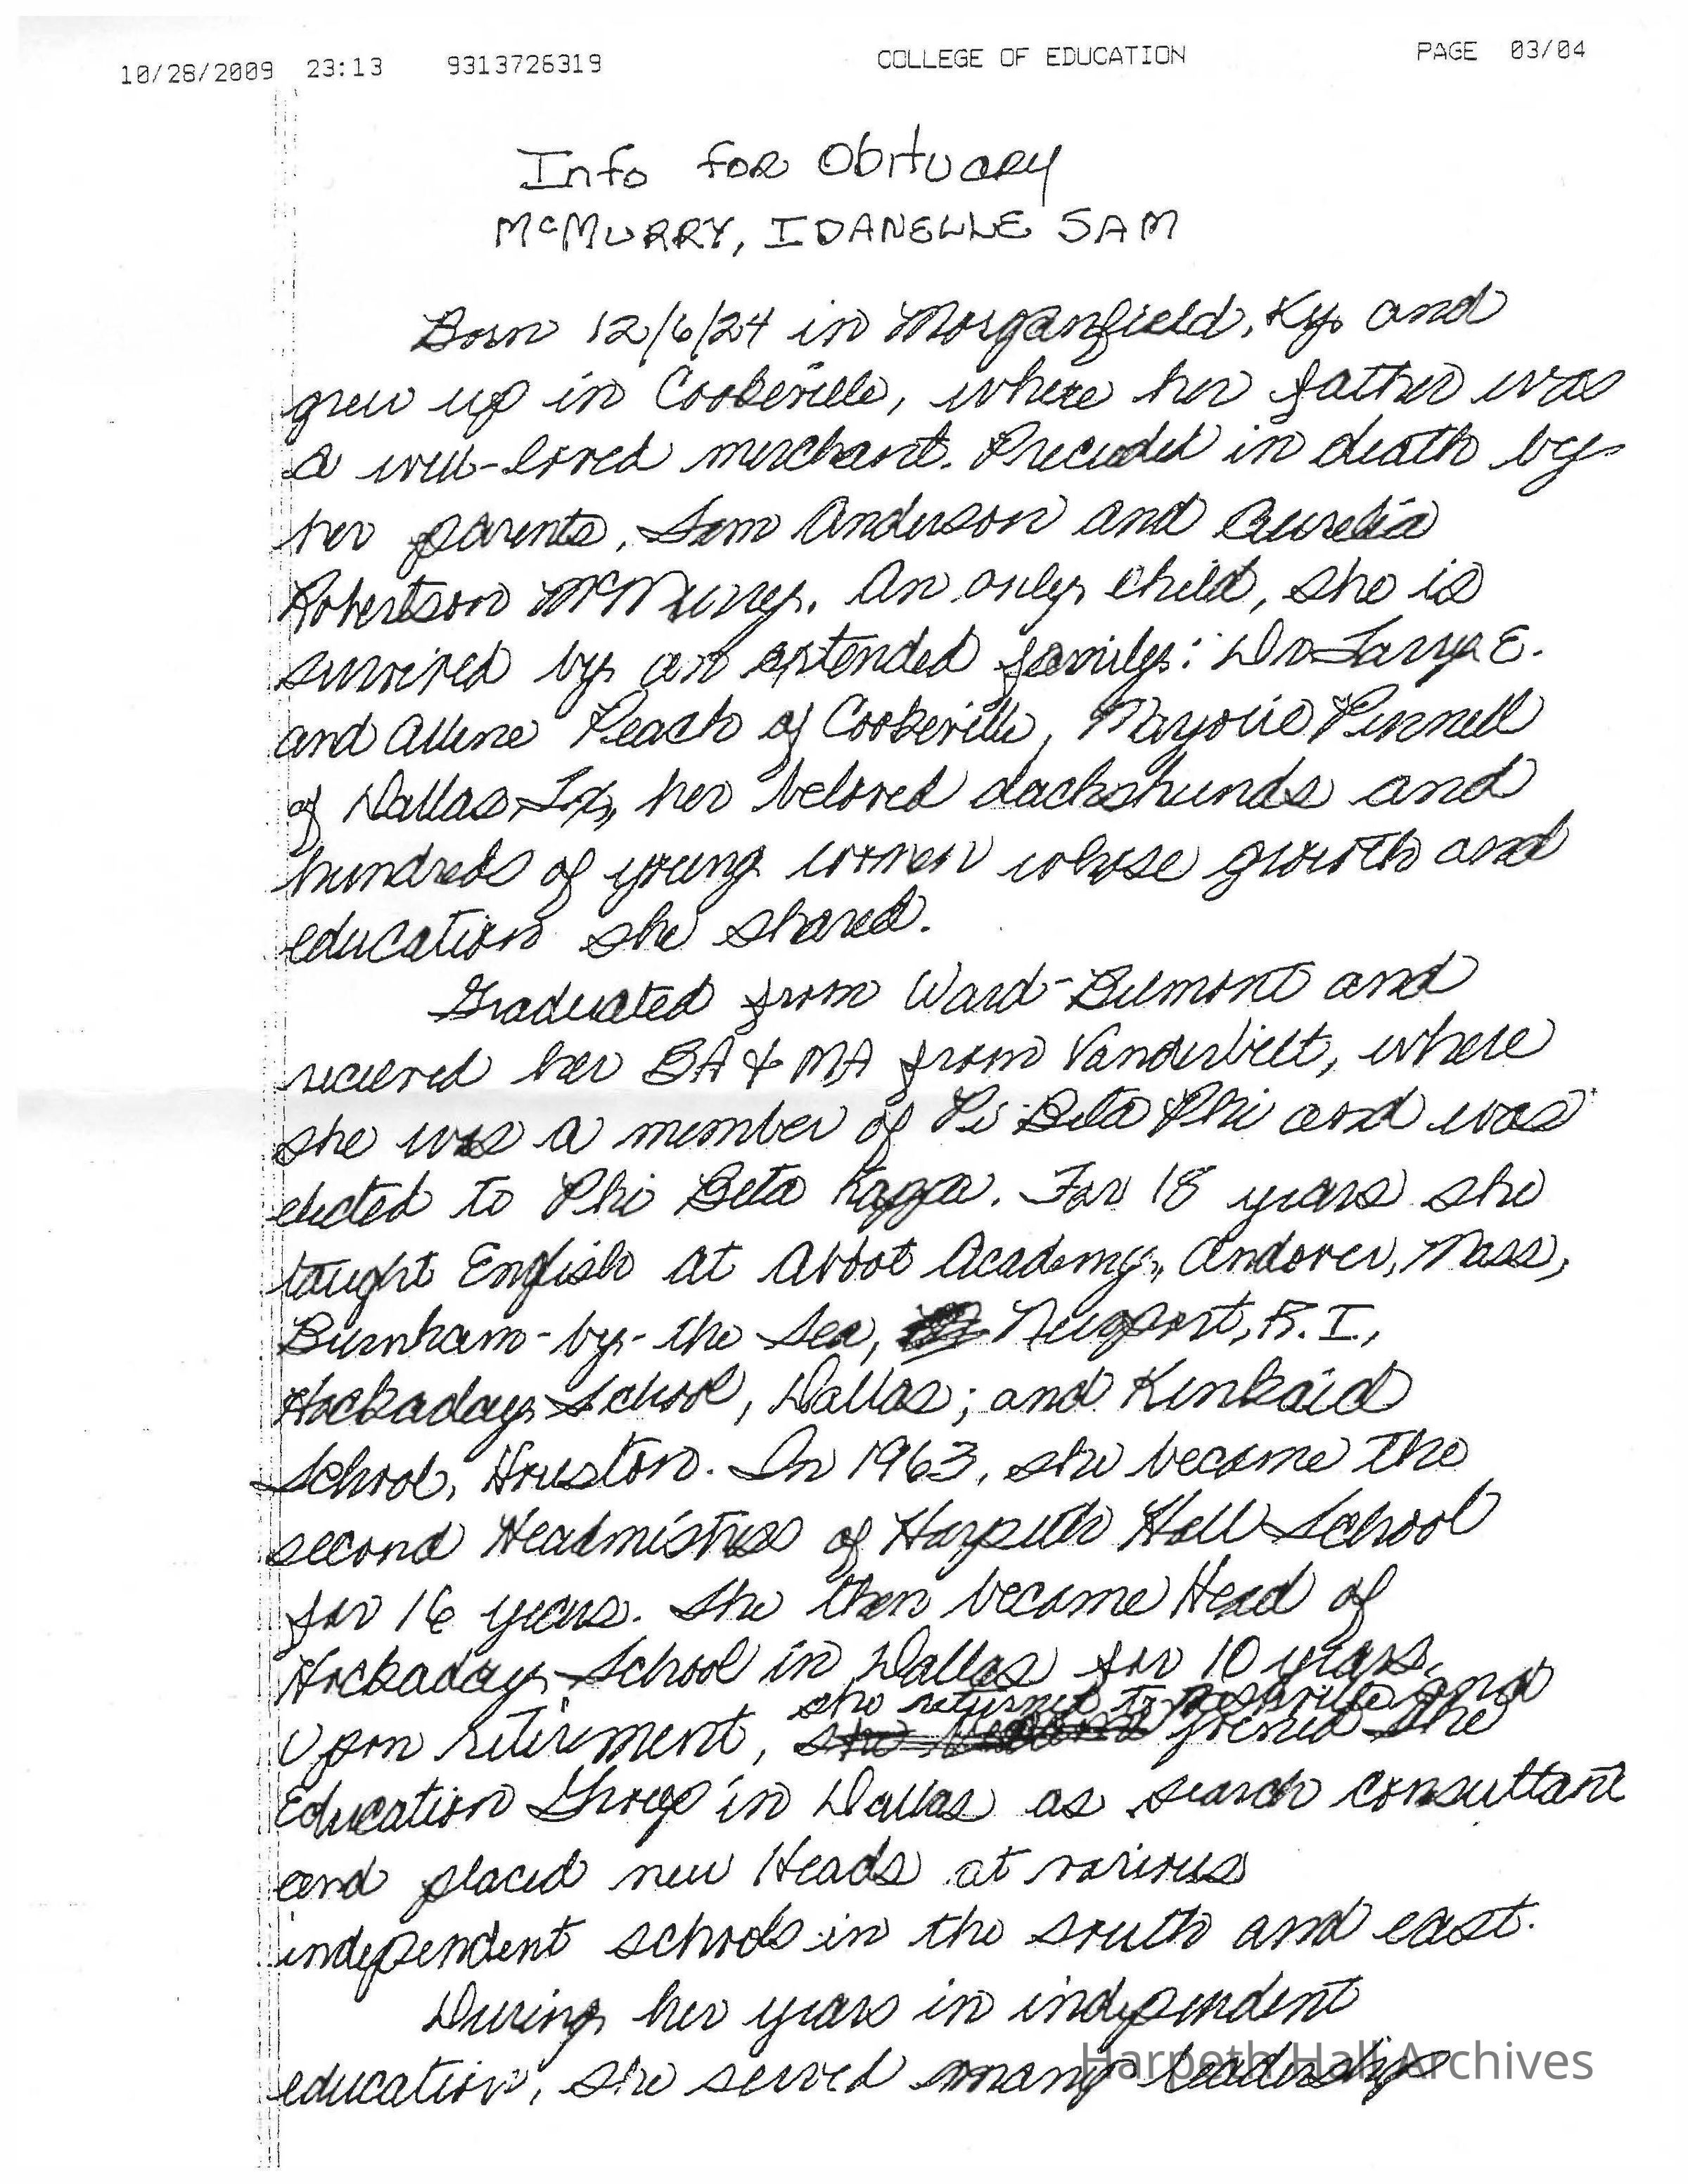 10/28/2009 23:13 9313726319 COLLEGE OF EDUCATION PAGE 03/04
Info for Obituary
McMURRY, IDANELLE SAM
Born 12/6/24 in Morganfield, Ky. and
grew up in Cookeville, where her father was
a well-loved merchant. Preceded in death by
her parents, Sam Anderson and Aurelia
Robertson McMurry. An only child, she is
survived by an extended family: Dr. Larry E.
and Allene Peach of Cookeville, Marjorie Pinnell
of Dallas Tx, her beloved dachshunds and
hundreds of young women whose growth and
education she shared.
Graduated from Ward-Belmont and
received her BA & MA from Vanderbilt, where
she was a member of Pi Beta Phi and was
elected to Phi Beta Kappa. For 18 years she
taught English at Abbot Academy, Andover, Mass,
Burnham-by-the Sea, Newport, R.I,
Hockaday School, Dallas; and Kinkaid
School, Houston. In 1963, she became the
second Headmistress of Harpeth Hall School
for 16 years. She then became Head of
Hockaday School in Dallas for 10 years.
she returned to Nashville and
Upon retirement, she joined the
Education Group in Dallas as search consultant
and placed new Heads at various
independent schools in the south and east.
During her years in independent
education, she served many leadership
Harpeth Hall Archives